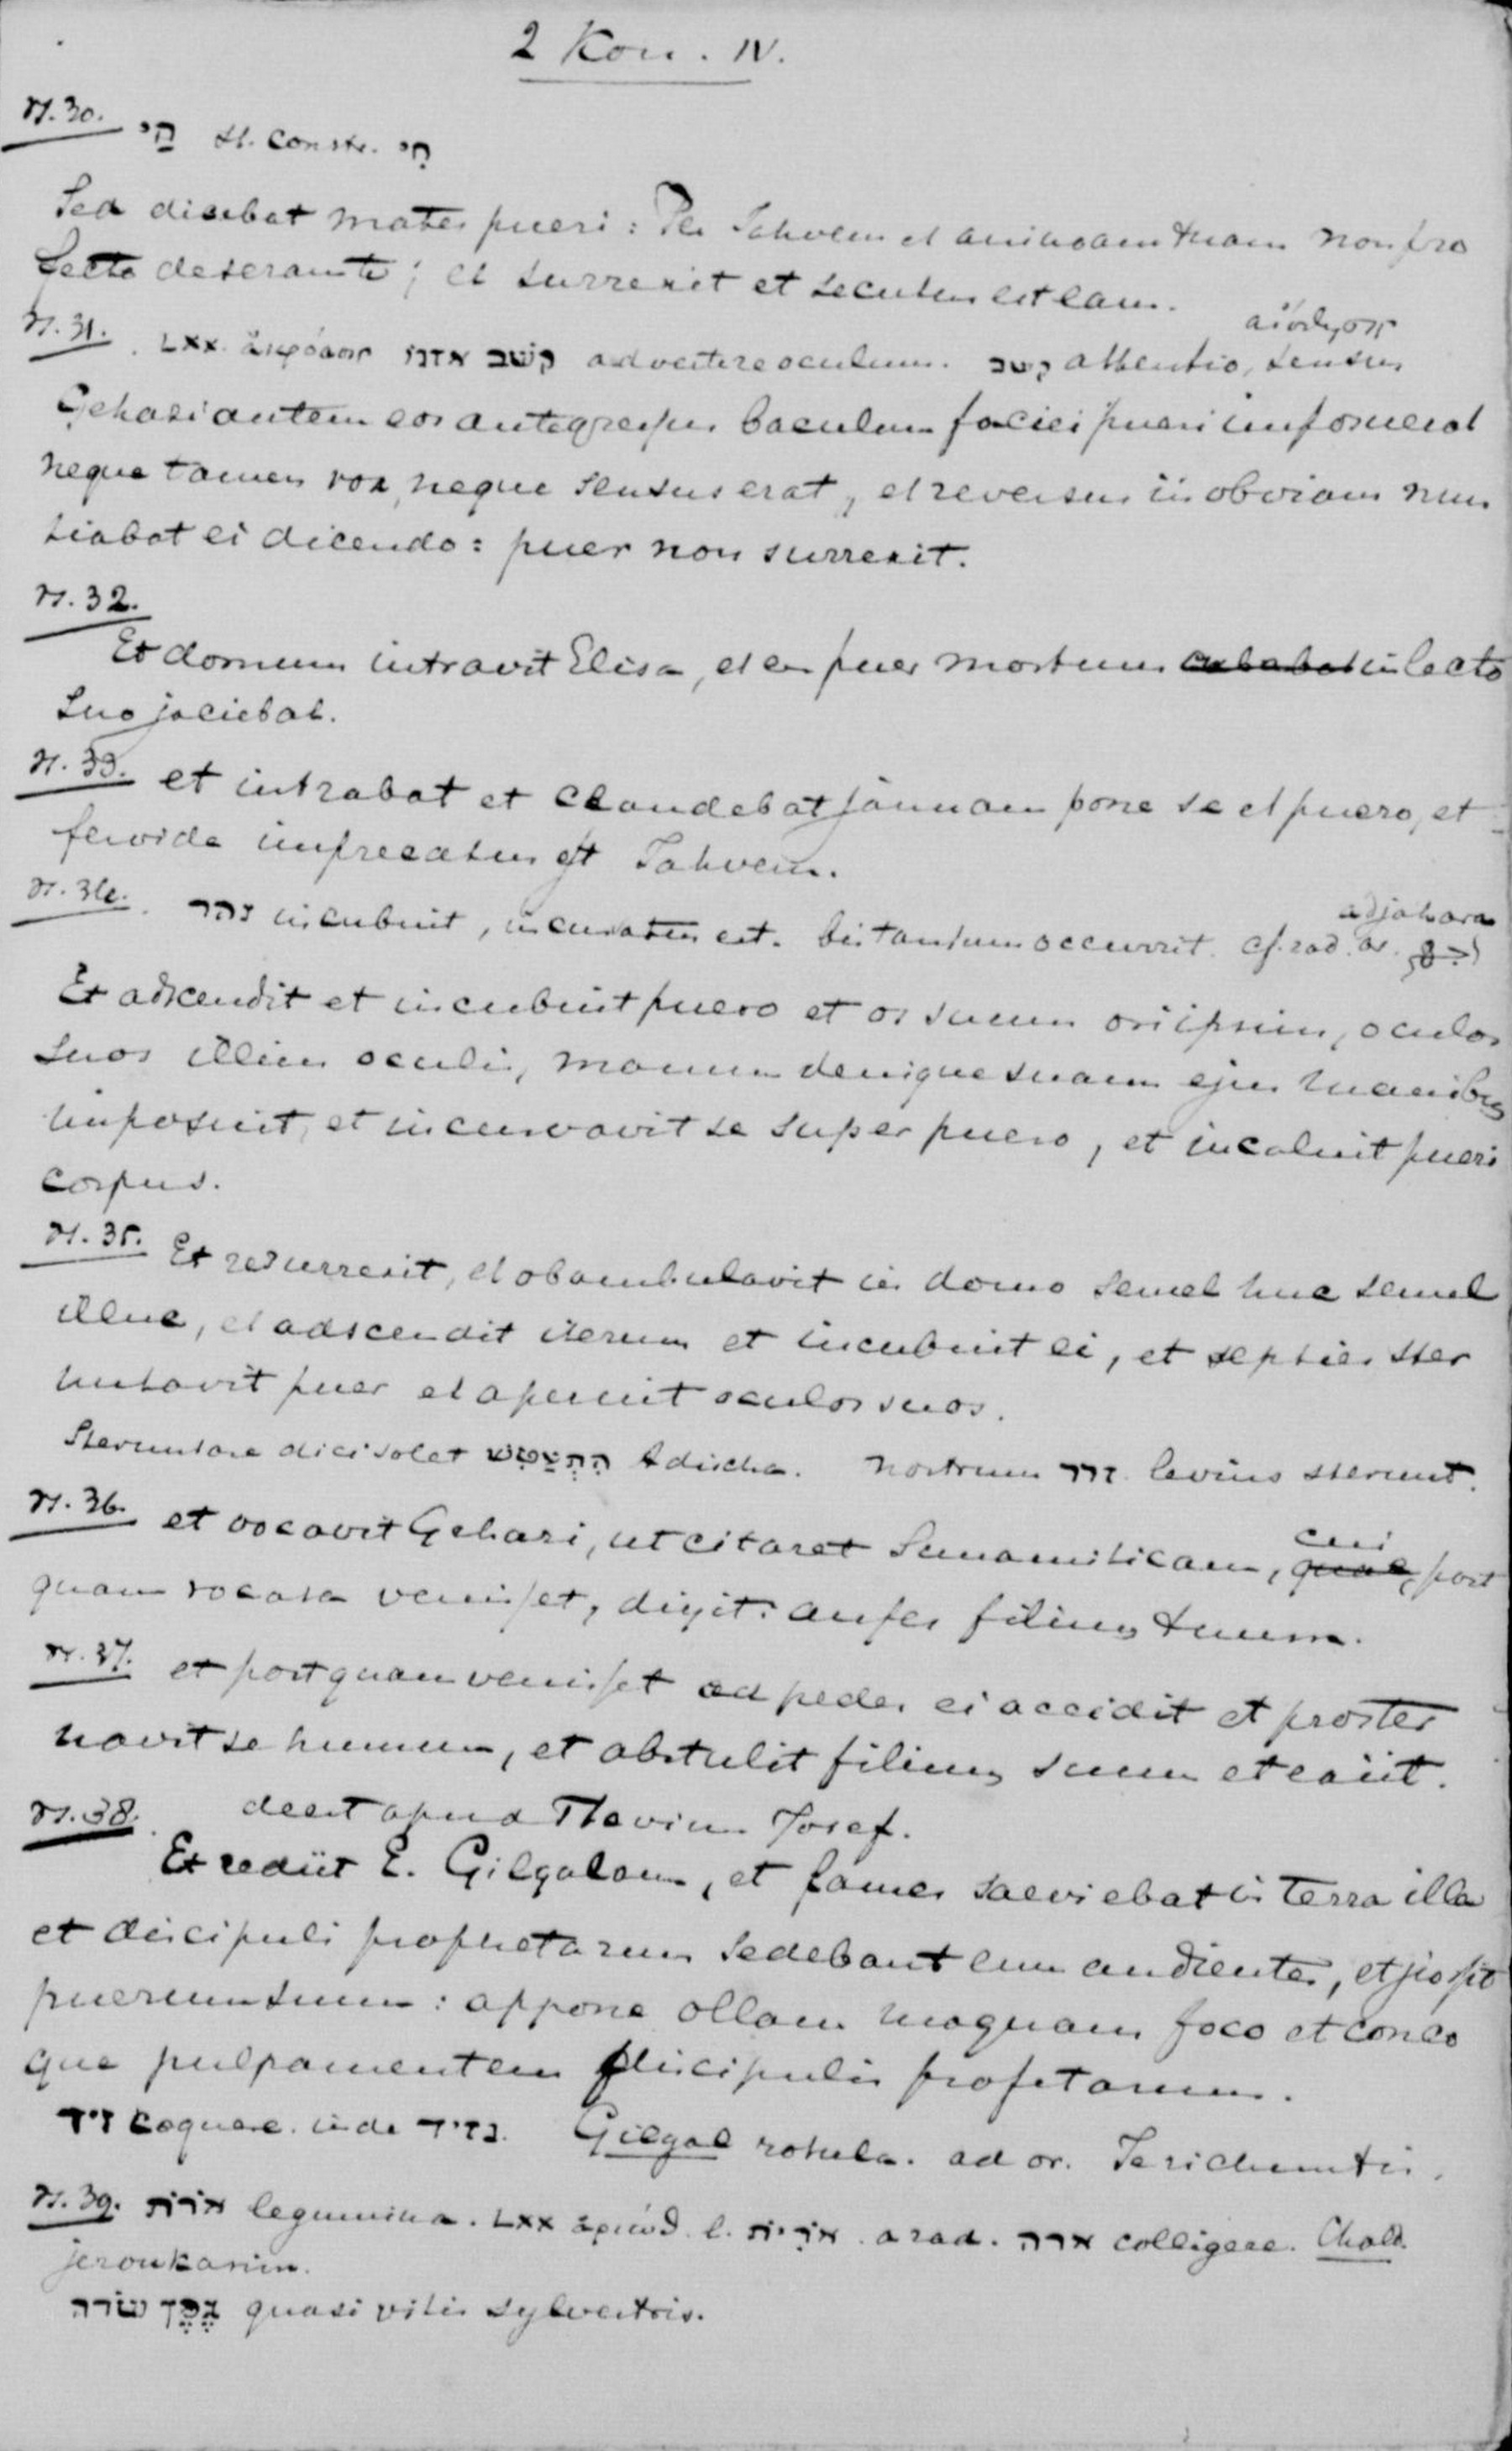 2 Kon. IV.
vs. 30. חַי st. constr. חֵי
Sed dicebat mater pueri: Per Jahvem et animam tuam non pro
fecto deseram te; et surrexit et secutus est eam.
αἴσθησις
vs. 31. LXX. ἀκρόασις קשב אזנו advertere oculum. קשב attentio, sensus
Gehasi autem eos antegressus baculum faciei pueri imposuerat
neque tamen vox, neque sensus erat, et reversus in obviam nun
tiabat ei dicendo: puer non surrexit.
vs. 32.
Et domum intravit Elisa, et en puer mortuus cubabat in lecto
suo jaciebat.
vs. 33. et intrabat et claudebat januam pone se et puero, et
fervide imprecatus est Jahvem.
adjahara
vs. 34. גהר incubuit, incurvatus est. bis tantum occurrit. cf. rad. ar.
Et adscendit et incubuit puero et os suum ori ipsius, oculos
suos illius oculis, manum denique suam ejus manibus
imposuit, et incurvavit se super puero, et incaluit pueri
corpus.
vs. 35. Et resurrexit, et obambulavit in domo semel huc semel
illuc, et adscendit iterum et incubuit ei, et septies ster
nutavit puer et aperuit oculos suos.
Sternutare dici solet הִתְעַטֵּשׁ Mischa. nostrum זרר levius sternut.
vs. 36. et vocavit Gehasi, ut citaret Sunamiticam, quae, cui post
quam vocata venisset, dixit: aufer filium tuum.
vs. 37. et postquam venisset ad pedes ei accidit et proster
navit se humum, et abstulit filium suum et exiit.
vs. 38. deest apud Flavium Josef.
Et rediit E. Gilgalam, et fames saeviebat in terra illa
et discipuli prophetarum sedebant eum audientes, et jussit
puerum suum: appone ollam magnam foco et conco
que pulpamentum discipulis profetarum.
זיד coquere. inde נזיד. Gilgal rotula. ad or. Jerichuntis.
vs. 39. אורות legumina. LXX ἀριώθ. l. אֹרִיּוֹת. a rad. ארה colligere. Chald.
jeroukanin.
גֶּפֶן שׂדה quasi vitis sylvestris.